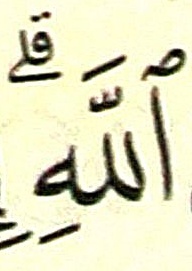 ٱللَّهِ ۗ